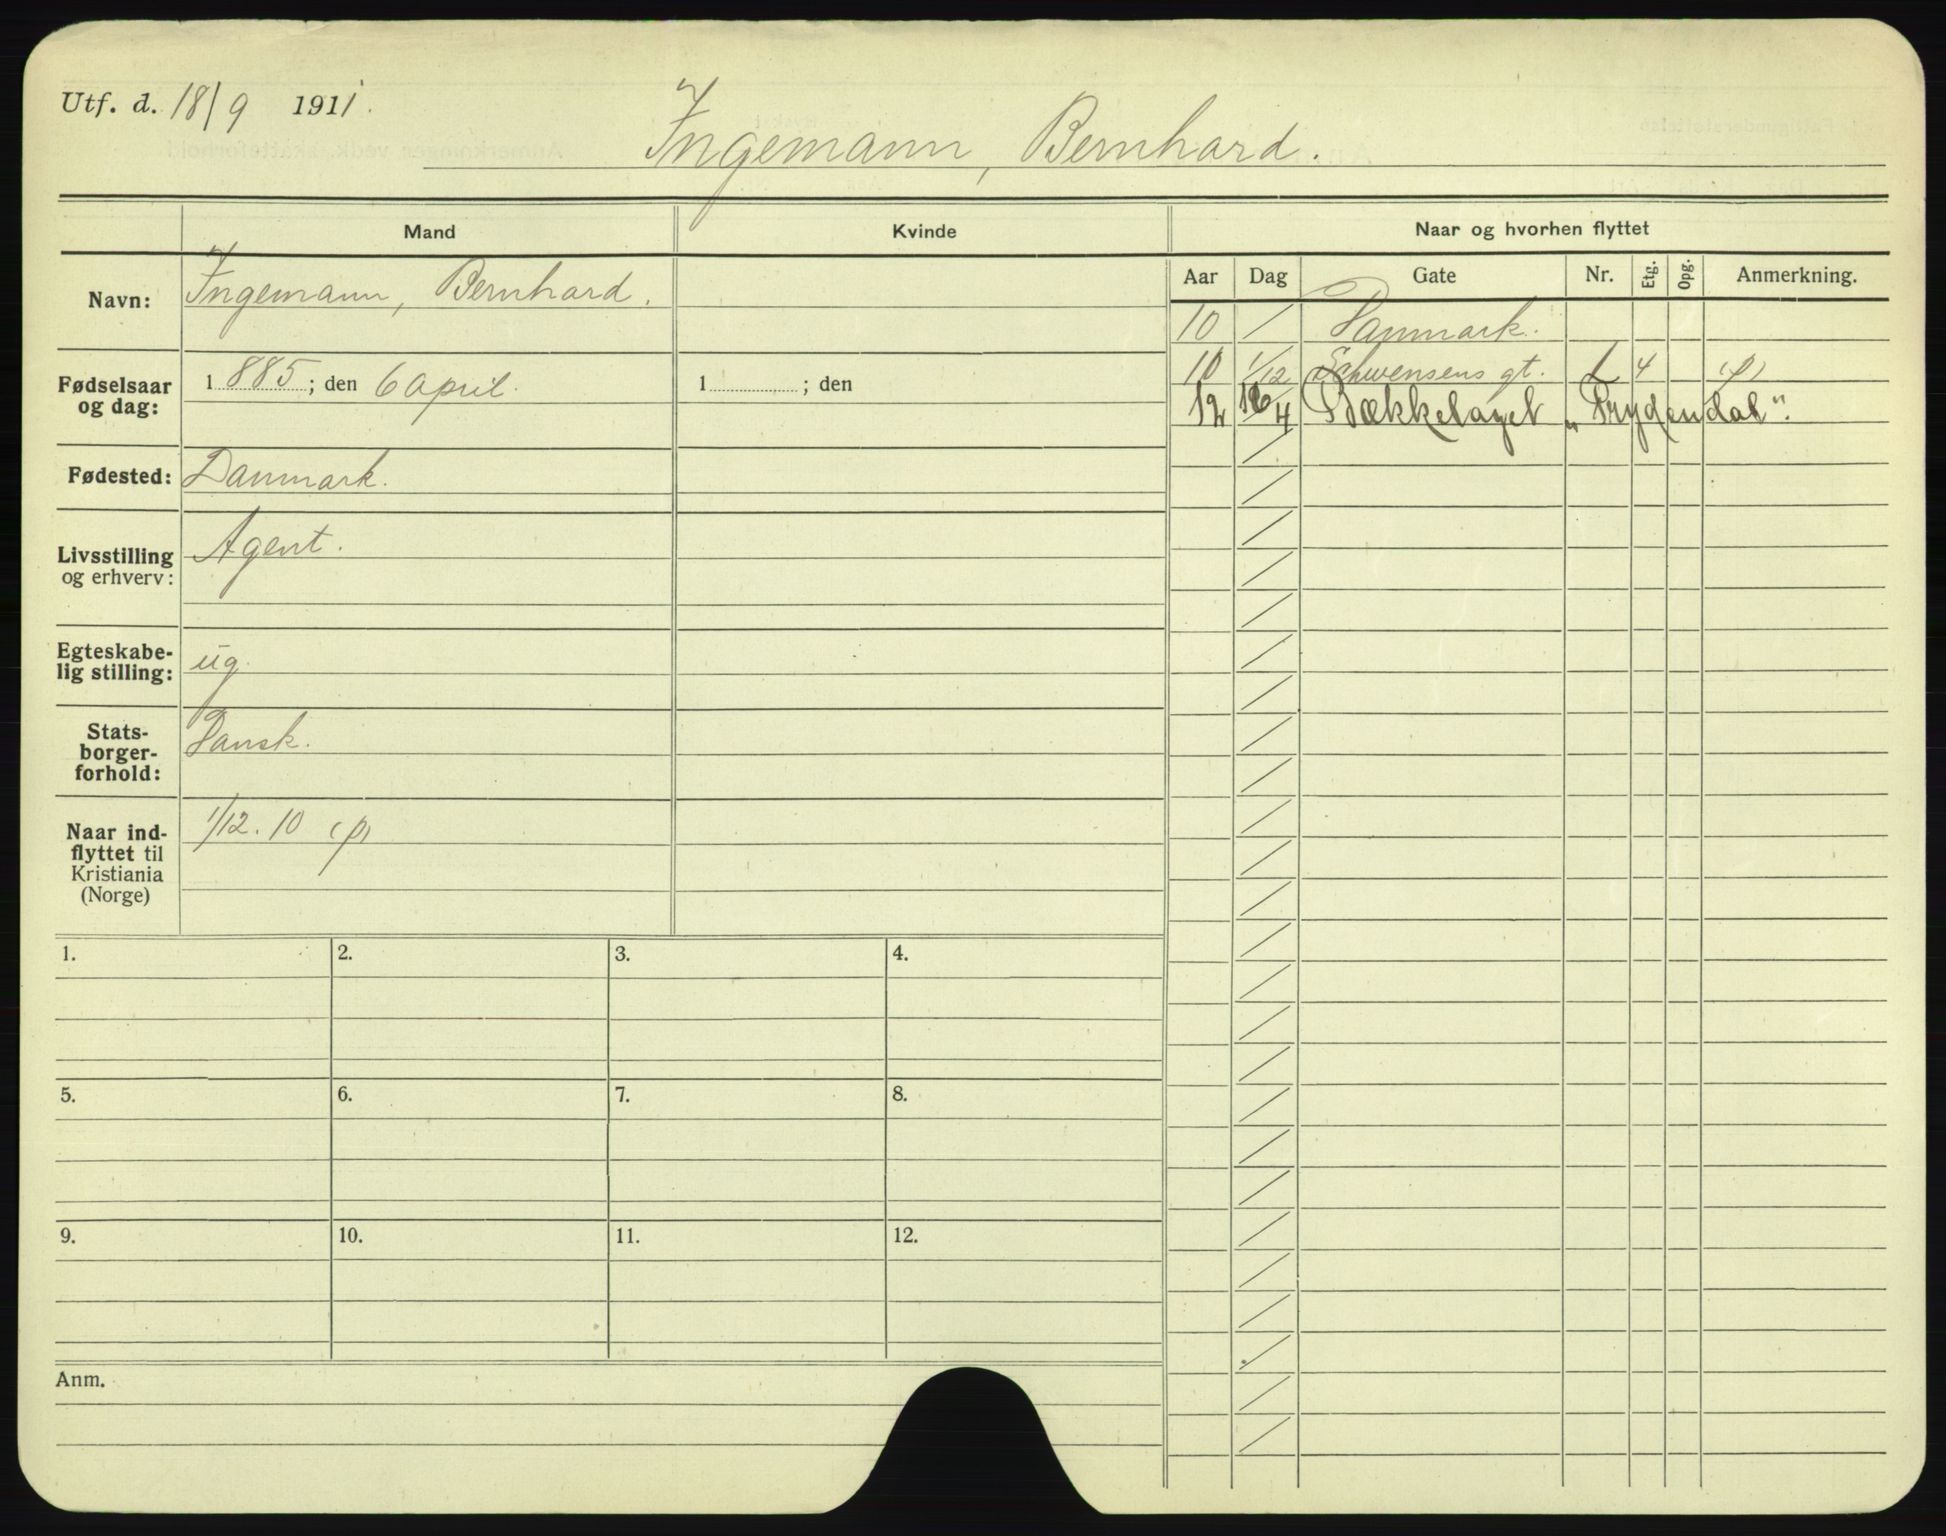 Utf. d. 18/9 1911.
Ingemann, Bernhard.
Mand
Kvinde
Naar og hvorhen flyttet
Navn: Ingemann, Bernhard.
Fødselsaar og dag: 1885; den 6 April.
1 ; den
Fødested: Danmark.
Livsstilling og erhverv: Agent.
Egteskabe-
lig stilling: ug.
Stats-
borger-
forhold: Dansk.
Naar ind-
flyttet til
Kristiania
(Norge)
1/12. 10 (p)
Aar Dag Gate Nr. Etg. Opg. Anmerkning.
10 / Danmark.
10 1/12 Schwensens gt. 4 (p)
12 16/4 Bækkelaget „Frydendal".
1. 2. 3. 4.
5. 6. 7. 8.
9. 10. 11. 12.
Anm.